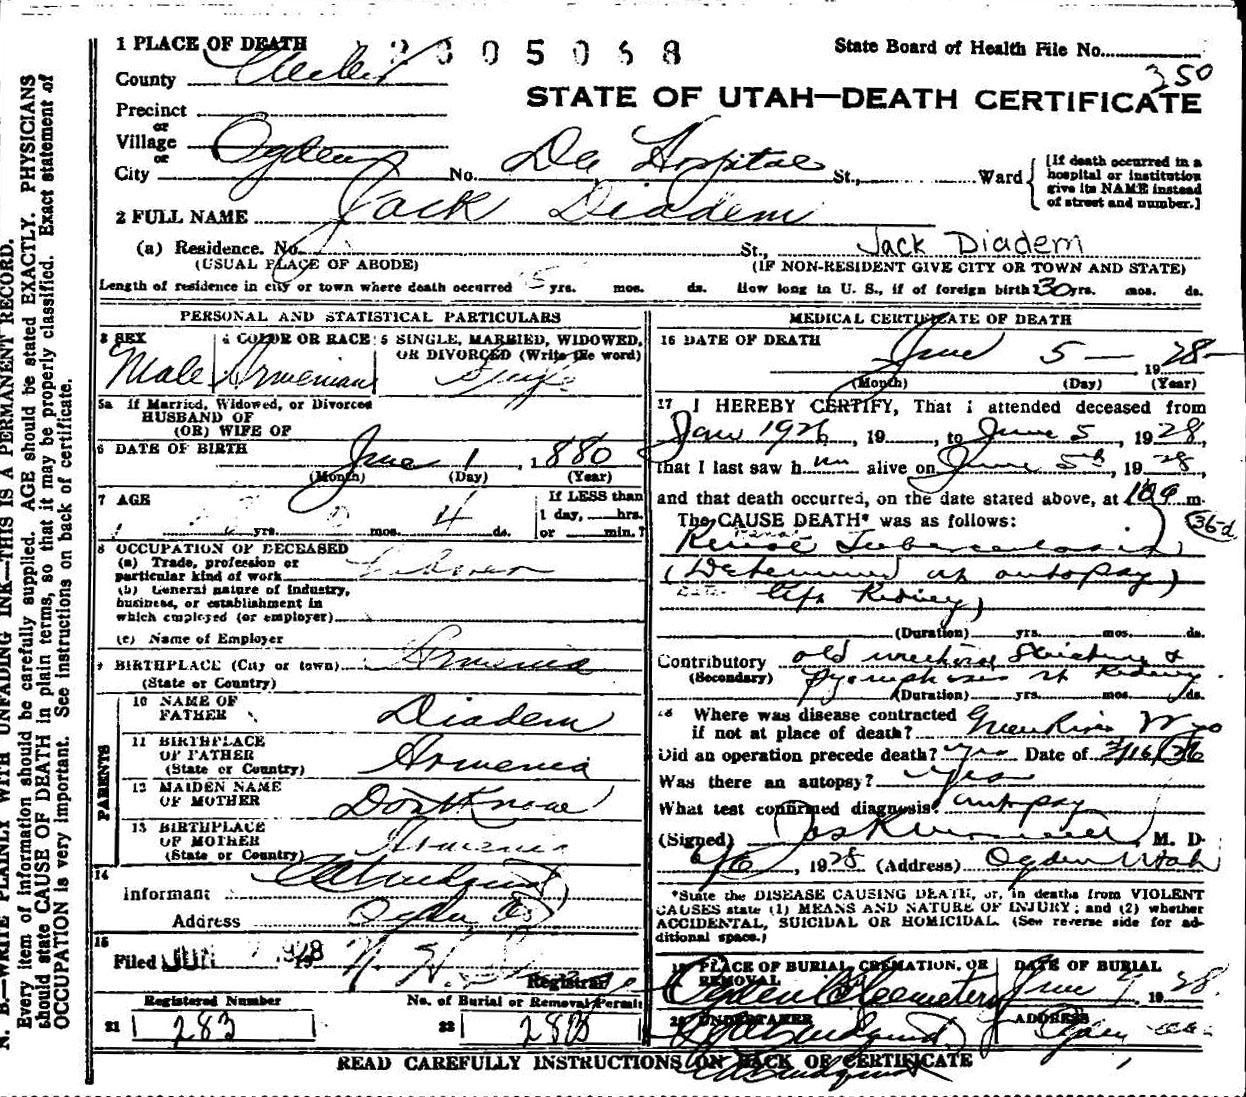 1 PLACE OF DEATH 2305068 State Board of Health File No.
County Weber 350
STATE OF UTAH—DEATH CERTIFICATE
Precinct
or
Village
or
City Ogden No. Dee Hospital St., Ward
[If death occurred in a
hospital or institution
give its NAME instead
of street and number.]
2 FULL NAME Jack Diadem
(a) Residence. No. St., Jack Diadem
(USUAL PLACE OF ABODE) (IF NON-RESIDENT GIVE CITY OR TOWN AND STATE)
Length of residence in city or town where death occurred 5 yrs. mos. ds. How long in U. S., if of foreign birth 30 yrs. mos. ds.
PERSONAL AND STATISTICAL PARTICULARS
3 SEX 4 COLOR OR RACE 5 SINGLE, MARRIED, WIDOWED,
OR DIVORCED (Write the word)
Male Armenian Single
5a If Married, Widowed, or Divorced
HUSBAND OF
(OR) WIFE OF
6 DATE OF BIRTH June 1, 1880
(Month) (Day) (Year)
7 AGE yrs. mos. 4 ds.
If LESS than
1 day, hrs.
or min.?
8 OCCUPATION OF DECEASED
(a) Trade, profession or
particular kind of work Laborer
(b) General nature of industry,
business, or establishment in
which employed (or employer)
(c) Name of Employer
9 BIRTHPLACE (City or town) Armenia
(State or Country)
PARENTS
10 NAME OF
FATHER Diadem
11 BIRTHPLACE
OF FATHER Armenia
(State or Country)
12 MAIDEN NAME
OF MOTHER Dont Know
13 BIRTHPLACE
OF MOTHER Armenia
(State or Country)
14
Informant
Address Ogden
15
Filed JUN 7 1928 Registrar
Registered Number No. of Burial or Removal Permit
21 283 22 283
MEDICAL CERTIFICATE OF DEATH
16 DATE OF DEATH June 5 — 1928
(Month) (Day) (Year)
17 I HEREBY CERTIFY, That I attended deceased from
Jan 1926, 19, to June 5, 1928,
that I last saw him alive on June 5th, 1928,
and that death occurred, on the date stated above, at m.
The CAUSE DEATH* was as follows: 36-d
Renal Tuberculosis
(Determined at autopsy)
left Kidney)
(Duration) yrs. mos. ds.
Contributory old urethral Stricture &
(Secondary) pyonephrosis rt Kidney
(Duration) yrs. mos. ds.
18 Where was disease contracted
if not at place of death? Green River Wyo
Did an operation precede death? yes Date of 3/16/26
Was there an autopsy? Yes
What test confirmed diagnosis? autopsy
(Signed) M. D.
6/6, 1928 (Address) Ogden Utah
*State the DISEASE CAUSING DEATH, or, in deaths from VIOLENT
CAUSES state (1) MEANS AND NATURE OF INJURY; and (2) whether
ACCIDENTAL, SUICIDAL OR HOMICIDAL. (See reverse side for ad-
ditional space.)
19 PLACE OF BURIAL, CREMATION, OR
REMOVAL DATE OF BURIAL
Ogden Cemetery June 7, 1928
20 UNDERTAKER ADDRESS
Ogden
READ CAREFULLY INSTRUCTIONS ON BACK OF CERTIFICATE
N. B.—WRITE PLAINLY WITH UNFADING INK—THIS IS A PERMANENT RECORD.
Every item of information should be carefully supplied. AGE should be stated EXACTLY. PHYSICIANS
should state CAUSE OF DEATH in plain terms, so that it may be properly classified. Exact statement of
OCCUPATION is very important. See instructions on back of certificate.